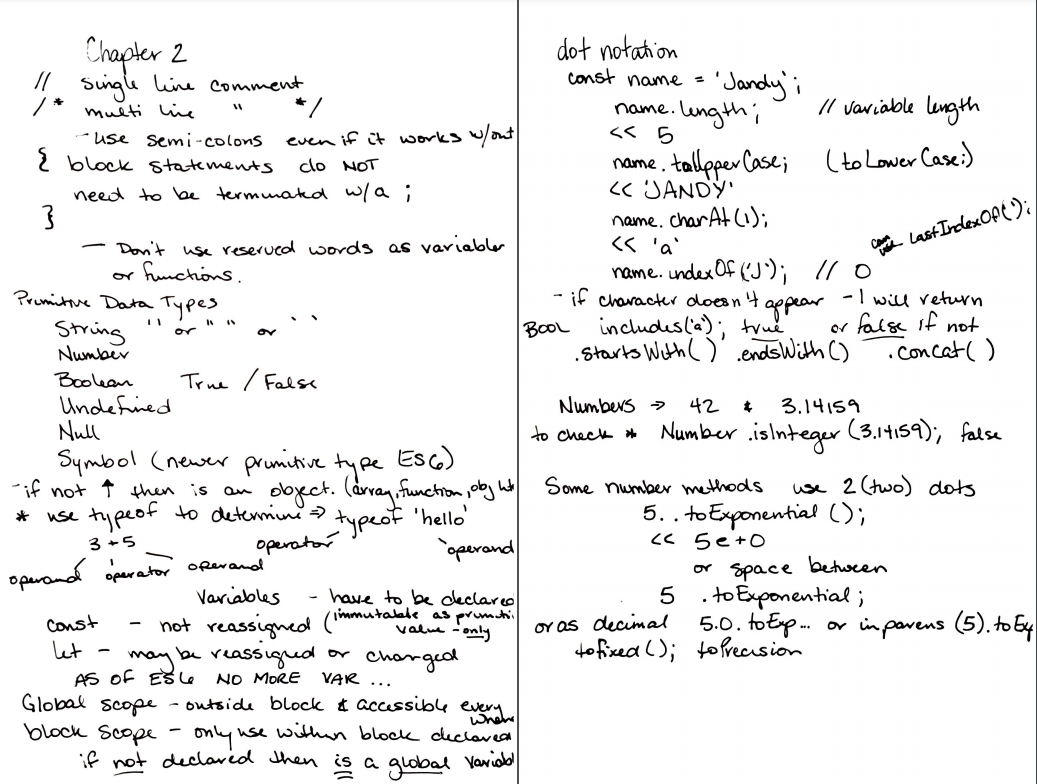 Chapter 2
// single line comment
/* multi line " */
- use semi-colons even if it works w/out
{ block statements do NOT
need to be terminated w/a ;
}
— Don't use reserved words as variables
or functions.
Primitive Data Types
String '' or " " or ` `
Number
Boolean True / False
Undefined
Null
Symbol (newer primitive type ES6)
- if not ↑ then is an object. (array, function, obj
* use typeof to determine ⇒ typeof 'hello'
3 + 5 operator operand
operand operator operand
Variables - have to be declared
const - not reassigned (immutable as primiti
value - only
let - may be reassigned or changed
AS OF ES6 NO MORE VAR ...
Global scope - outside block & accessible every
where
block scope - only use within block declared
if not declared then is a global variabl
dot notation
const name = 'Jandy';
name.length; // variable length
<< 5
name.toUpperCase; (toLowerCase;)
<< 'JANDY'
name.charAt(1);
<< 'a'
can use lastIndexOf(' ');
name.indexOf('J'); // 0
- if character doesn't appear -1 will return
BOOL includes('a'); true or false if not
.startsWith( ) .endsWith() .concat( )
Numbers → 42 & 3.14159
to check * Number.isInteger(3.14159); false
Some number methods use 2 (two) dots
5..toExponential ();
<< 5e+0
or space between
5 .toExponential;
or as decimal 5.0.toExp... or in parens (5).toEx
toFixed(); toPrecision